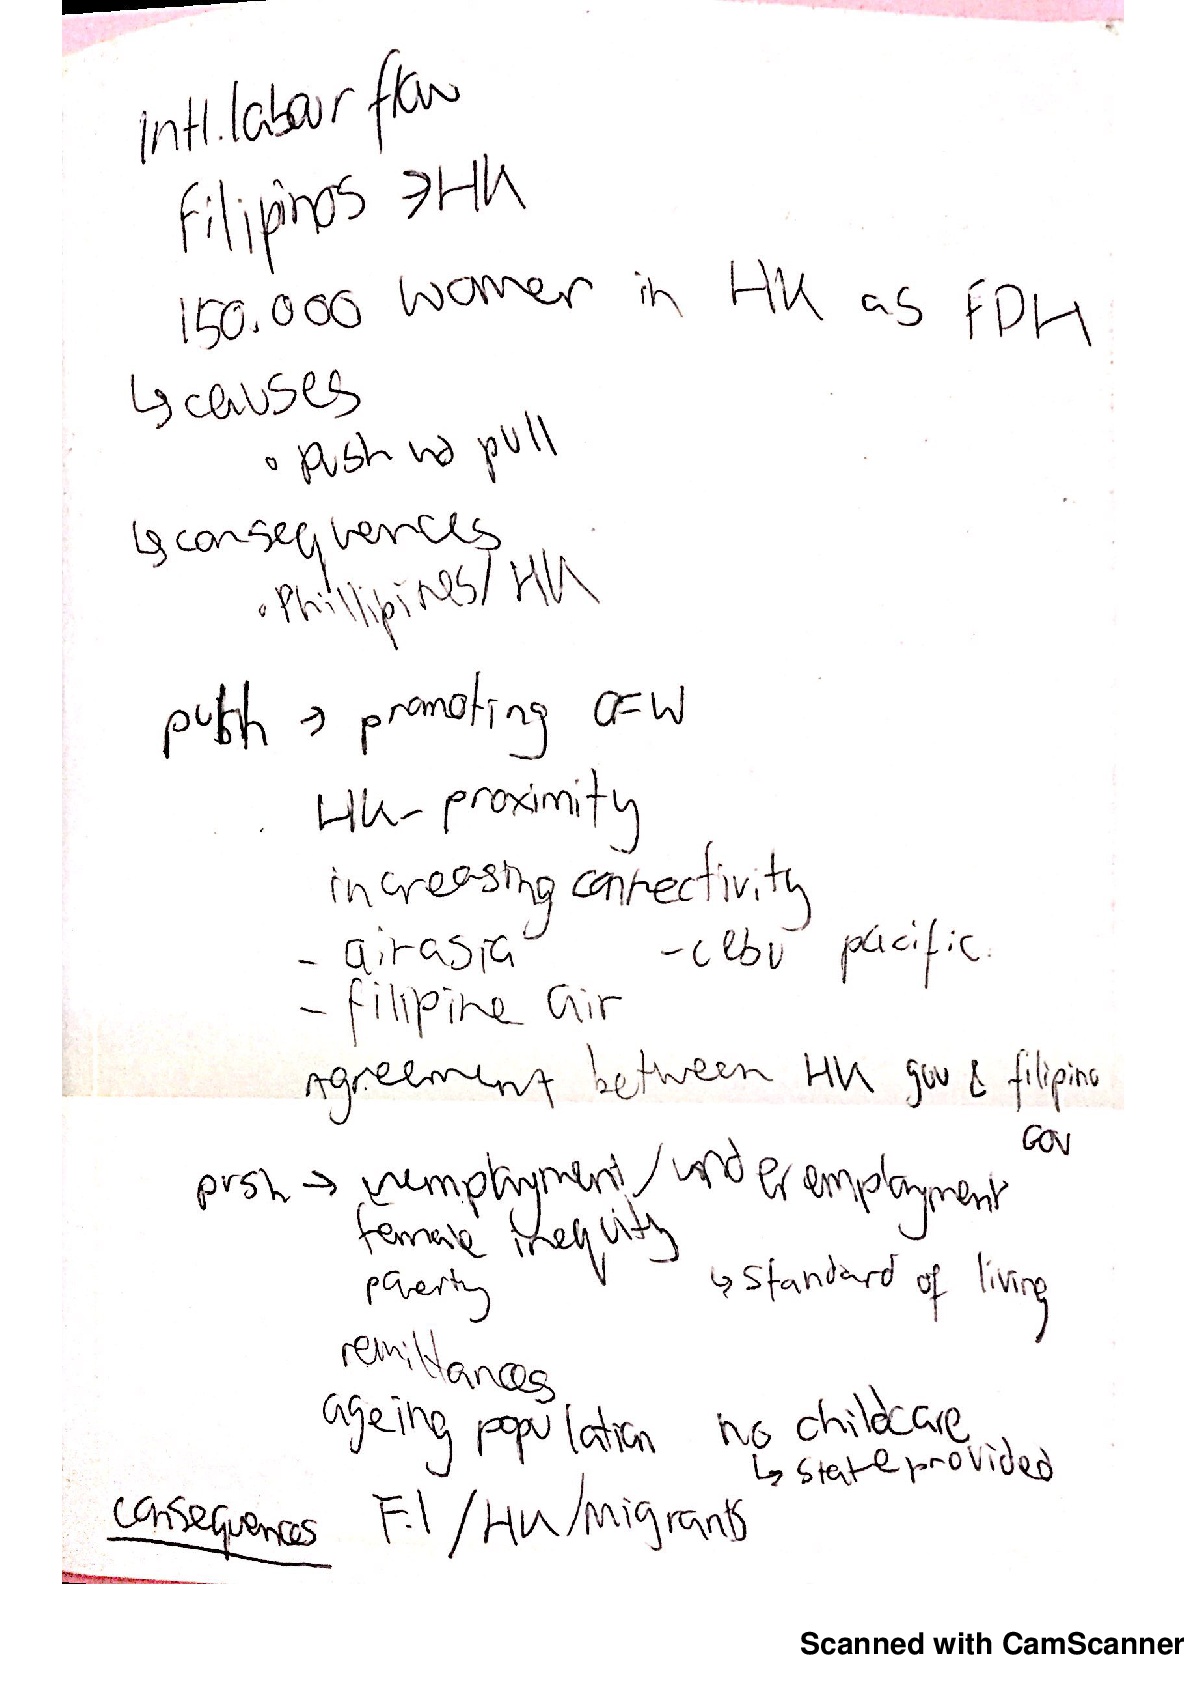 intl. labour flow
Filipinos → HK
150.000 women in HK as FDH
↳ causes
• push no pull
↳ consequences
• Phillipines / HK
push → promoting OFW
HK - proximity
increasing connectivity
- airasia - cebu pacific.
- filipine air
Agreement between HK gov & filipino
gov
push → unemployment / underemployment
female inequity
poverty ↳ standard of living
remittances
ageing population no childcare
↳ state provided
consequences F.I / HK / migrants
Scanned with CamScanner